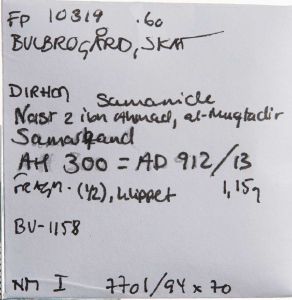 FP 10319 .60
BULBROGÅRD, SKAT
DIRHEM Samanide
Nasr 2 ibn Ahmad, al-Muqtadir
Samarkand
AH 300 = AD 912/13
Fragm. (1/2), klippet 1,15g
BV-1158
NM I 7701/94 x 70